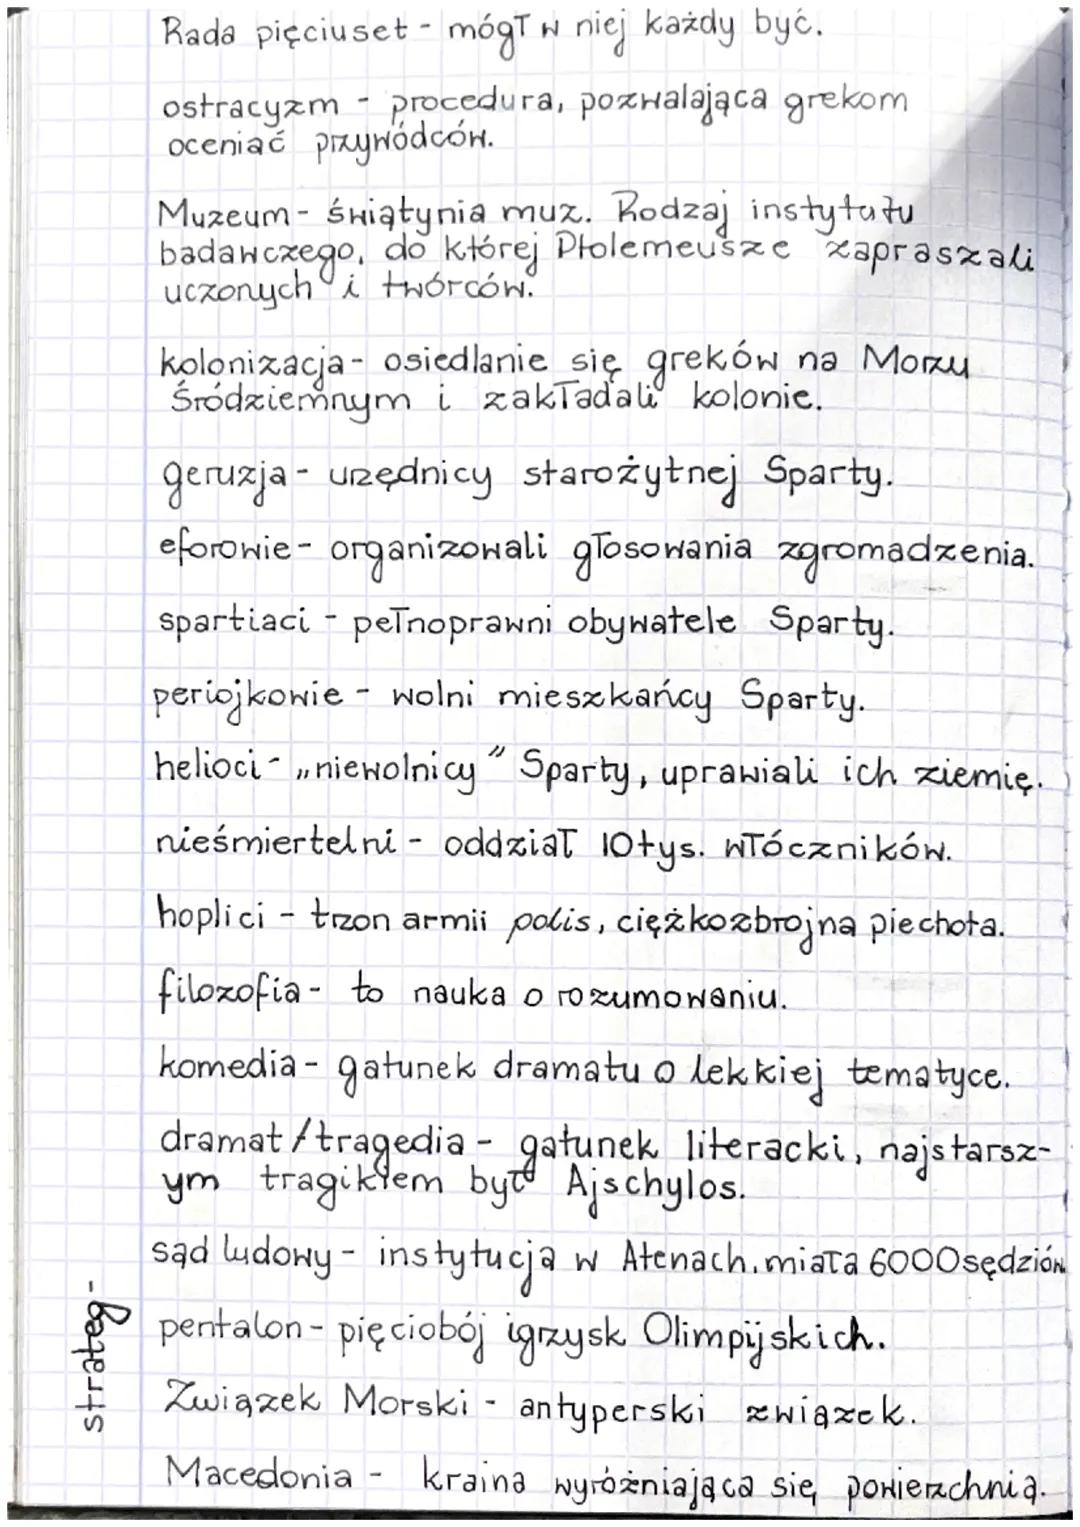 Rada pięciuset - mógł w niej każdy być.
ostracyzm - procedura, pozwalająca grekom
oceniać przywódców.
Muzeum - świątynia muz. Rodzaj instytutu
badawczego, do której Ptolemeusze zapraszali
uczonych i twórców.
kolonizacja - osiedlanie się greków na Morzu
Śródziemnym i zakładali kolonie.
geruzja - urzędnicy starożytnej Sparty.
eforowie - organizowali głosowania zgromadzenia.
spartiaci - pełnoprawni obywatele Sparty.
periojkowie - wolni mieszkańcy Sparty.
helioci - „niewolnicy" Sparty, uprawiali ich ziemię.
nieśmiertelni - oddział 10tys. włóczników.
hoplici - trzon armii polis, ciężkozbrojna piechota.
filozofia - to nauka o rozumowaniu.
komedia - gatunek dramatu o lekkiej tematyce.
dramat/tragedia - gatunek literacki, najstarsz-
ym tragikiem był Ajschylos.
sąd ludowy - instytucja w Atenach. miała 6000 sędziów
pentalon - pięciobój igrzysk Olimpijskich.
Związek Morski - antyperski związek.
Macedonia - kraina wyróżniająca się powierzchnią.
strateg -